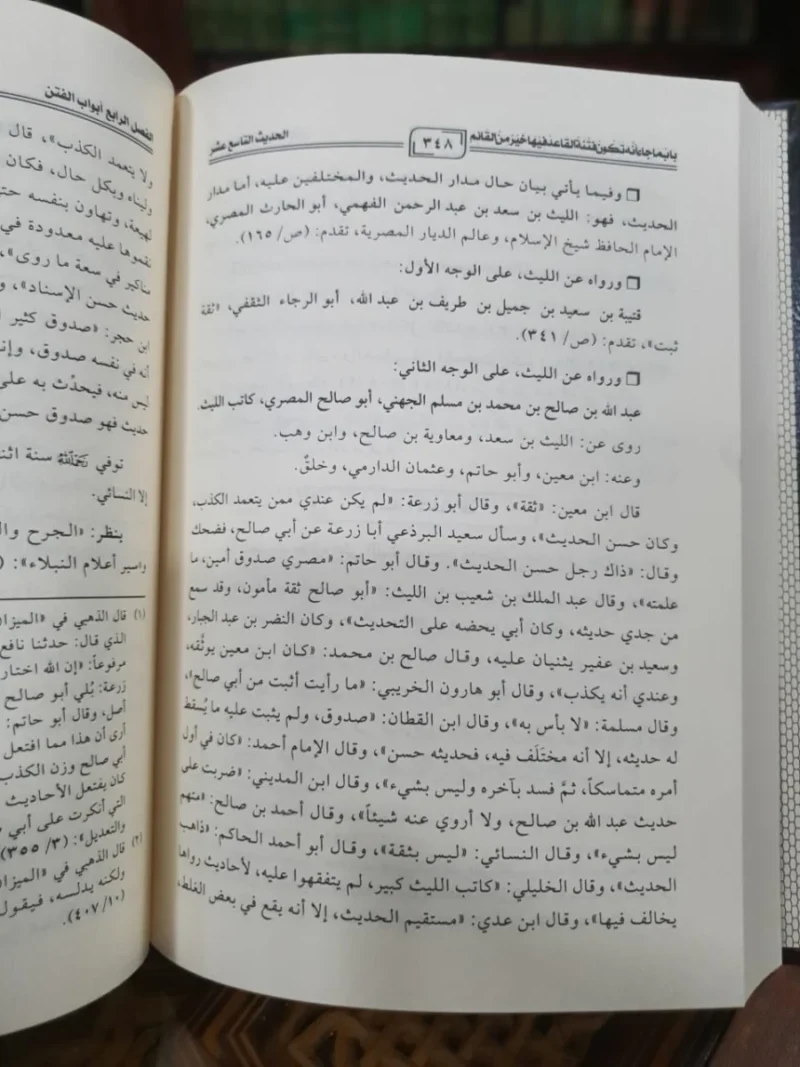 باب ما جاء أنه تكون فتنة القاعد فيها خير من القائم
٣٤٨
الحديث التاسع عشر
❒ وفيما يأتي بيان حال مدار الحديث، والمختلفين عليه، أما مدار
الحديث، فهو: الليث بن سعد بن عبد الرحمن الفهمي، أبو الحارث المصري،
الإمام الحافظ شيخ الإسلام، وعالم الديار المصرية، تقدم: (ص/ ١٦٥).
❒ ورواه عن الليث، على الوجه الأول:
قتيبة بن سعيد بن جميل بن طريف بن عبد الله، أبو الرجاء الثقفي، «ثقة
ثبت»، تقدم: (ص/ ٣٤١).
❒ ورواه عن الليث، على الوجه الثاني:
عبد الله بن صالح بن محمد بن مسلم الجهني، أبو صالح المصري، كاتب الليث.
روى عن: الليث بن سعد، ومعاوية بن صالح، وابن وهب.
وعنه: ابن معين، وأبو حاتم، وعثمان الدارمي، وخلقٌ.
قال ابن معين: «ثقة»، وقال أبو زرعة: «لم يكن عندي ممن يتعمد الكذب،
وكان حسن الحديث»، وسأل سعيد البرذعي أبا زرعة عن أبي صالح، فضحك
وقال: «ذاك رجل حسن الحديث». وقال أبو حاتم: «مصري صدوق أمين، ما
علمته»، وقال عبد الملك بن شعيب بن الليث: «أبو صالح ثقة مأمون، وقد سمع
من جدي حديثه، وكان أبي يحضه على التحديث»، وكان النضر بن عبد الجبار،
وسعيد بن عفير يثنيان عليه، وقال صالح بن محمد: «كان ابن معين يوثَّقه،
وعندي أنه يكذب»، وقال أبو هارون الخريبي: «ما رأيت أثبت من أبي صالح»،
وقال مسلمة: «لا بأس به»، وقال ابن القطان: «صدوق، ولم يثبت عليه ما يُسقط
له حديثه، إلا أنه مختلَف فيه، فحديثه حسن»، وقال الإمام أحمد: «كان في أول
أمره متماسكاً، ثمَّ فسد بآخره وليس بشيء»، وقال ابن المديني: «ضربت على
حديث عبد الله بن صالح، ولا أروي عنه شيئاً»، وقال أحمد بن صالح: «متهم
ليس بشيء»، وقال النسائي: «ليس بثقة»، وقال أبو أحمد الحاكم: «ذاهب
الحديث»، وقال الخليلي: «كاتب الليث كبير، لم يتفقهوا عليه، لأحاديث رواها
يخالف فيها»، وقال ابن عدي: «مستقيم الحديث، إلا أنه يقع في بعض الغلط،
الفصل الرابع أبواب الفتن
ولا يتعمد الكذب»، قال
وليناه وبكل حال، فكان
لهيعة، وتهاون بنفسه حتى
نقموها عليه معدودة في
مناكير في سعة ما روى»،
حديث حسن الإسناد»، و
ابن حجر: «صدوق كثير
أنه في نفسه صدوق، وإن
ليس منه، فيحدِّث به على
حديث فهو صدوق حسن
توفي رحمه الله سنة اثن
إلا النسائي.
ينظر: «الجرح وال
و«سير أعلام النبلاء»: (
(١) قال الذهبي في «الميزا
الذي قال: حدثنا نافع
مرفوعاً: «إن الله اختار
زرعة: بُلي أبو صالح
أصل، وقال أبو حاتم:
أرى أن هذا مما افتعل
أبي صالح وزن الكذب
كان يفتعل الأحاديث
التي أنكرت على أبي
والتعديل»: (٣/ ٣٥٥)
(٢) قال الذهبي في «الميزا
ولكنه يدلسه، فيقول
(١٠/ ٤٠٧).